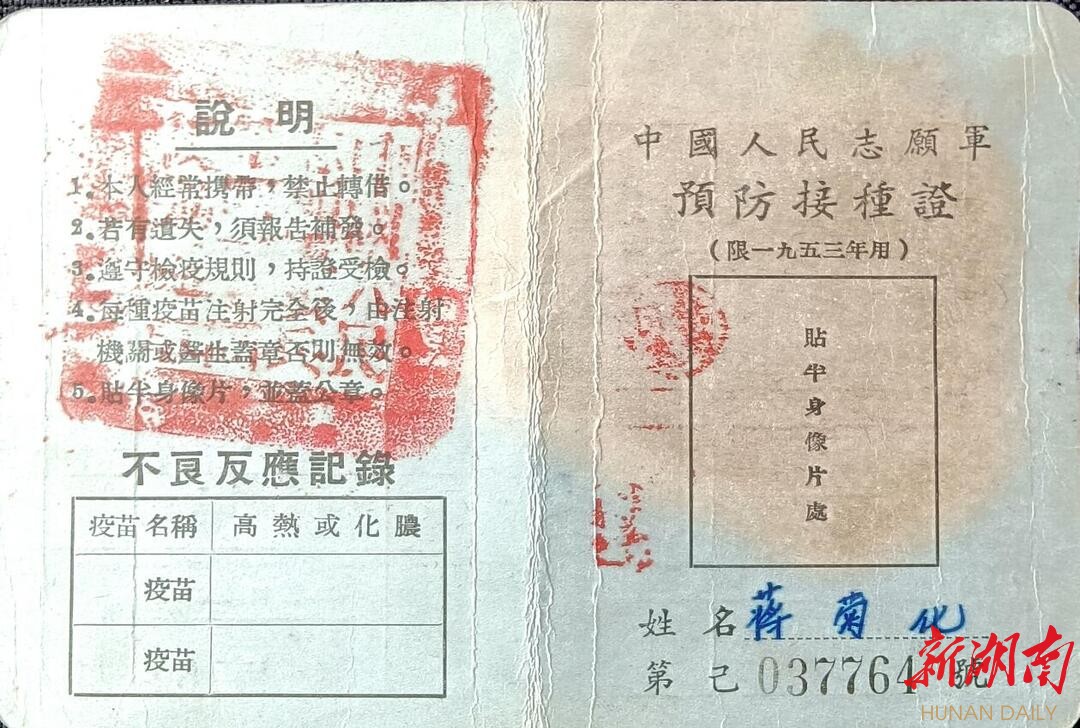 說明
1.本人經常携帶，禁止轉借。
2.若有遺失，須報告補發。
3.遵守檢疫規則，持證受檢。
4.每種疫苗注射完全後，由注射
機關或醫生蓋章否則無效。
5.貼半身像片，並蓋公章。
不良反應記錄
疫苗名稱 高熱或化膿
疫苗
疫苗
中國人民志願軍
預防接種證
(限一九五三年用)
貼半身像片處
姓名 蒋菊化
第 己037764 號
新湖南
HUNAN DAILY